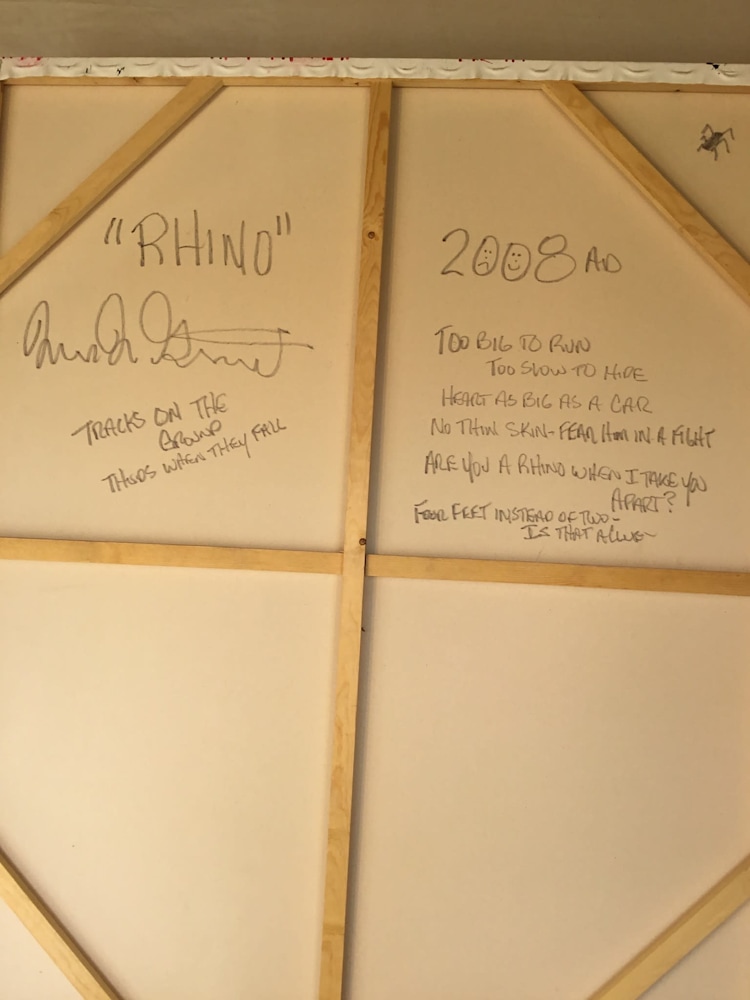 "RHINO"
TRACKS ON THE
GROUND
THUDS WHEN THEY FALL
2008 AD
TOO BIG TO RUN
TOO SLOW TO HIDE
HEART AS BIG AS A CAR
NO THIN SKIN - FEAR HIM IN A FIGHT
ARE YOU A RHINO WHEN I TAKE YOU
APART?
FOUR FEET INSTEAD OF TWO -
IS THAT A CLUE~